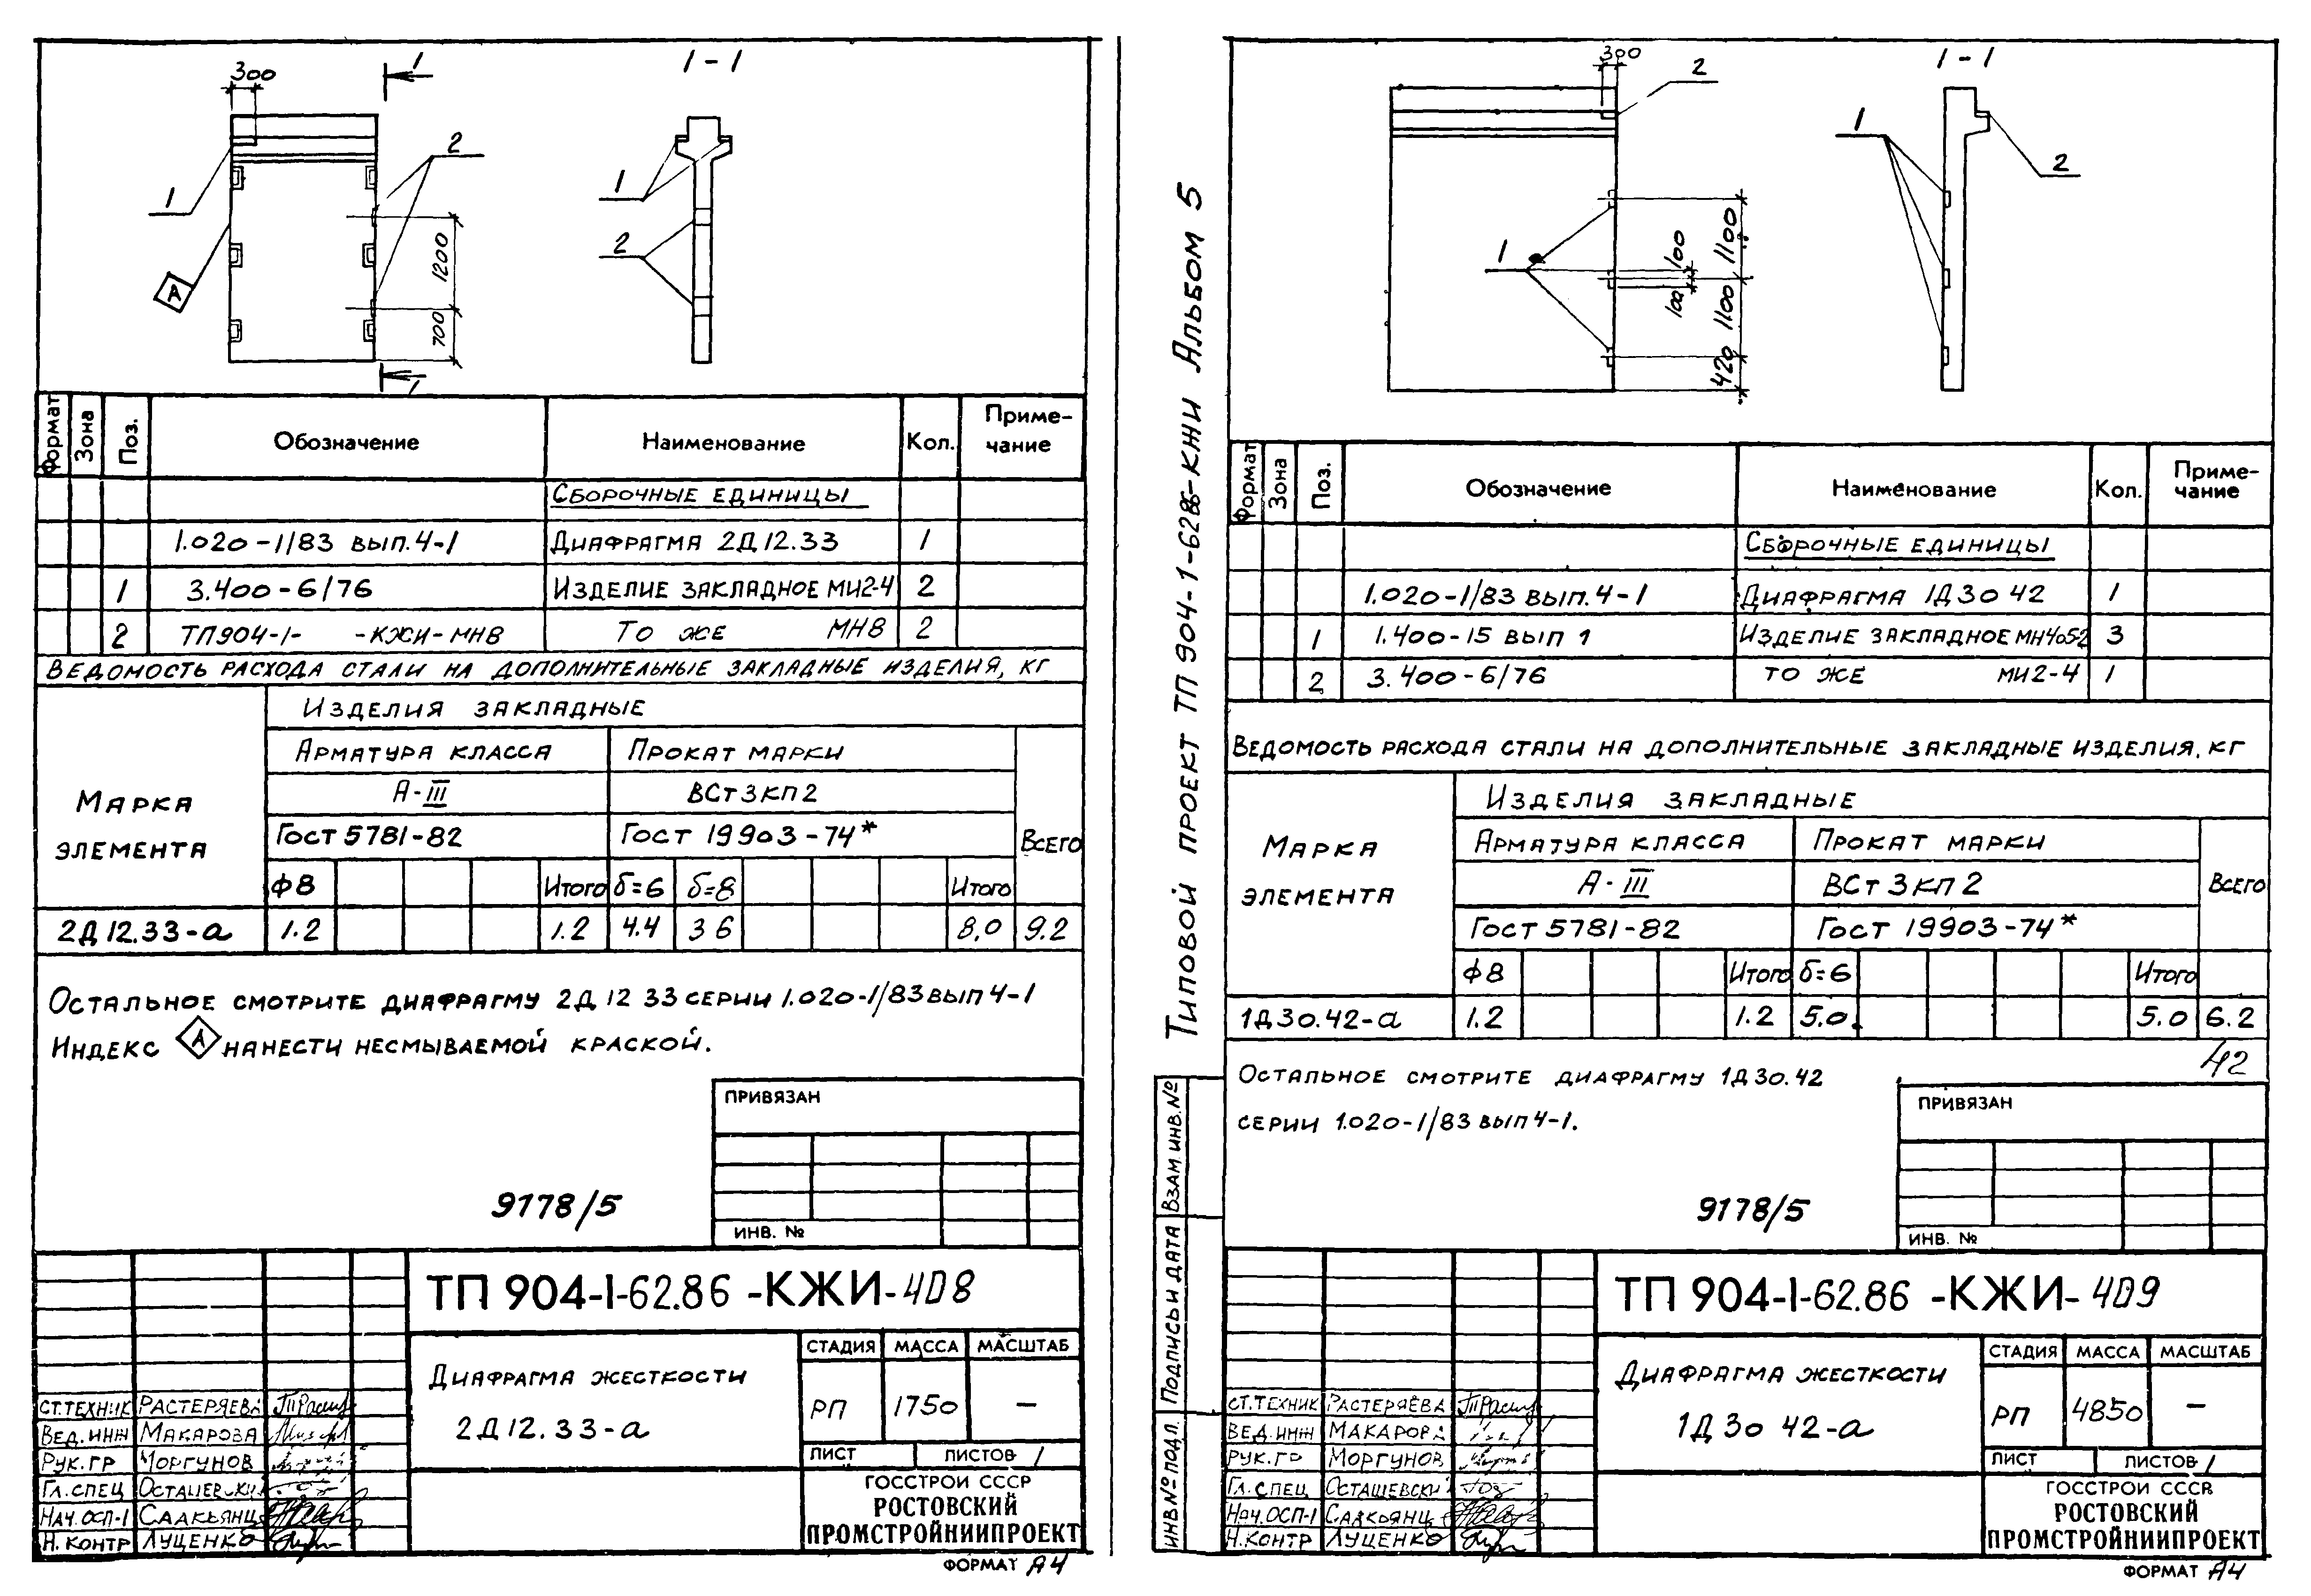 300
1
1-1
2
1
1
2
1200
700
А
1
Формат
Зона
Поз.
Обозначение
Наименование
Кол.
Приме-
чание
Сборочные единицы
1.020-1/83 вып.4-1 Диафрагма 2Д12.33 1
1 3.400-6/76 Изделие закладное МИ2-4 2
2 ТП904-1- -КЖИ-МН8 То же МН8 2
Ведомость расхода стали на дополнительные закладные изделия, кг
Марка
элемента
Изделия закладные
Арматура класса Прокат марки
А-III ВСт3кп2
Гост 5781-82 Гост 19903-74*
Всего
Ф8 Итого б=6 б=8 Итого
2Д12.33-а 1.2 1.2 4.4 3 6 8,0 9.2
Остальное смотрите диафрагму 2Д 12 33 серии 1.020-1/83 вып 4-1
Индекс А нанести несмываемой краской.
ПРИВЯЗАН
ИНВ. №
9178/5
ТП 904-1-62.86 -КЖИ-4Д8
Диафрагма жесткости
2Д12.33-а
СТАДИЯ МАССА МАСШТАБ
РП 1750 —
ЛИСТ ЛИСТОВ 1
ГОССТРОИ СССР
РОСТОВСКИЙ
ПРОМСТРОЙНИИПРОЕКТ
Ст.техник Растеряева
Вед.инж Макарова
Рук.гр Моргунов
Гл.спец Осташевский
Нач.ОСП-1 Саакьянц
Н.контр Луценко
ФОРМАТ А4
Типовой проект ТП 904-1-62.86-КЖИ Альбом 5
300
2
1-1
1
2
1
100
100
1100
1100
420
Формат
Зона
Поз.
Обозначение
Наименование
Кол.
Приме-
чание
Сборочные единицы
1.020-1/83 вып.4-1 Диафрагма 1Д30 42 1
1 1.400-15 вып 1 Изделие закладное МН405-2 3
2 3.400-6/76 то же МИ2-4 1
Ведомость расхода стали на дополнительные закладные изделия, кг
Марка
элемента
Изделия закладные
Арматура класса Прокат марки
А-III ВСт3кп2
Гост 5781-82 Гост 19903-74*
Всего
Ф8 Итого б=6 Итого
1Д30.42-а 1.2 1.2 5.0 5.0 6.2
42
Остальное смотрите диафрагму 1Д30.42
серии 1.020-1/83 вып 4-1.
ПРИВЯЗАН
ИНВ. №
9178/5
Взам.инв.№
Подпись и дата
Инв№подл.
ТП 904-1-62.86 -КЖИ- 4Д9
Диафрагма жесткости
1Д30 42-а
СТАДИЯ МАССА МАСШТАБ
РП 4850 —
ЛИСТ ЛИСТОВ 1
ГОССТРОИ СССР
РОСТОВСКИЙ
ПРОМСТРОЙНИИПРОЕКТ
Ст.техник Растеряева
Вед.инж Макарова
Рук.гр Моргунов
Гл.спец Осташевский
Нач.ОСП-1 Саакьянц
Н.контр Луценко
ФОРМАТ А4